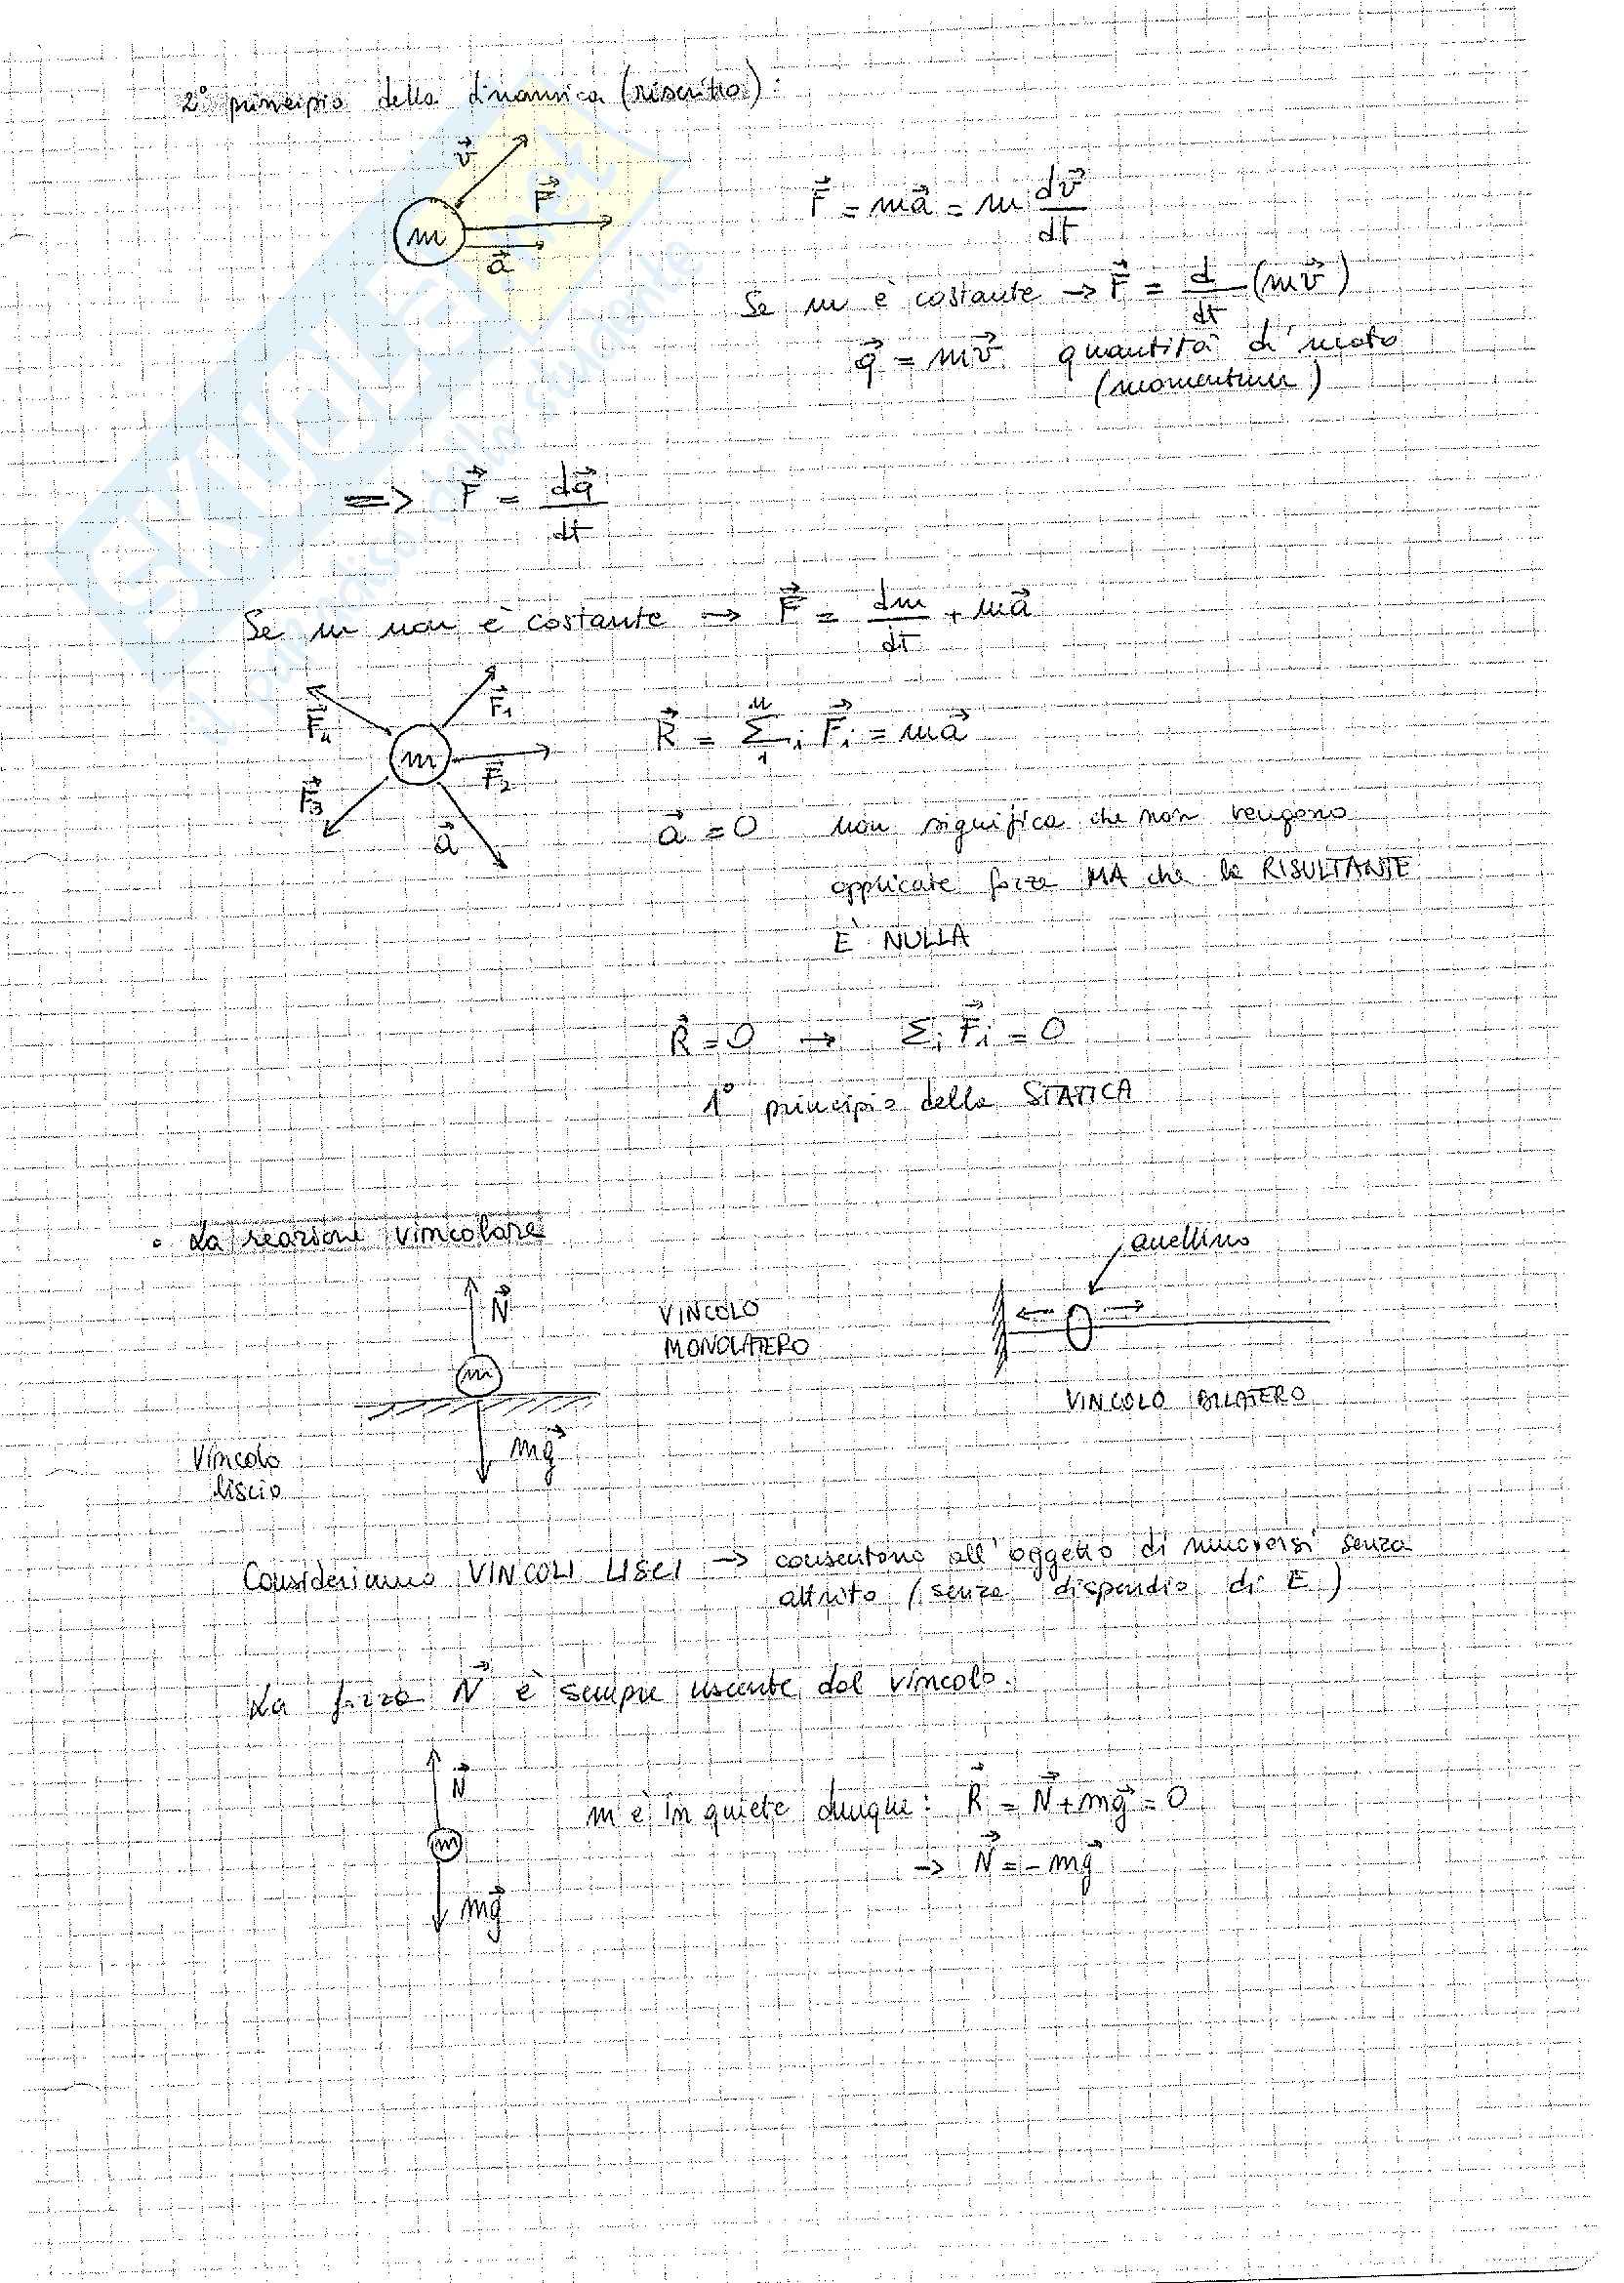 2° principio della dinamica (riscritto):
v⃗
F⃗
m
a⃗
F⃗ = ma⃗ = m dv⃗/dt
Se m è costante → F⃗ = d/dt (mv⃗)
q⃗ = mv⃗ quantità di moto
(momentum)
=> F⃗ = dq⃗/dt
Se m non è costante → F⃗ = dm/dt + ma⃗
F⃗4 F⃗1
m
F⃗2
F⃗3
a⃗
R⃗ = Σ₁ⁿ i F⃗i = ma⃗
a⃗ = 0 non significa che non vengono
applicate forze MA che la RISULTANTE
E' NULLA
R⃗ = 0 → Σi F⃗i = 0
1° principio della STATICA
• La reazione vincolare
N⃗
m
mg⃗
Vincolo
liscio
VINCOLO
MONOLATERO
anellino
VINCOLO BILATERO
Consideriamo VINCOLI LISCI → consentono all'oggetto di muoversi senza
attrito (senza dispendio di E)
La forza N⃗ è sempre uscente dal vincolo.
N⃗
m
mg⃗
m è in quiete dunque: R⃗ = N⃗ + mg⃗ = 0
→ N⃗ = - mg⃗